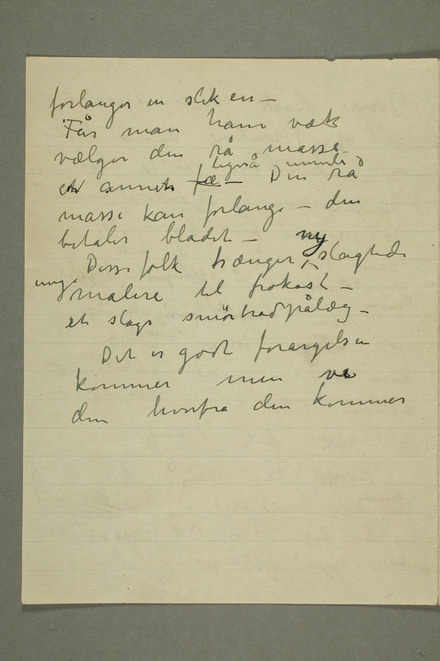 forlanger en slik en –
Får man ham væk
vælger den rå masse
et annet fæ – Den rå
masse kan forlange – den
betaler bladet – ny
Disse folk trænger slagtede
unge malere til frokost –
et slags smørbrødpålæg –
Det er godt forargelsen
kommer men ve
den hvorfra den kommer